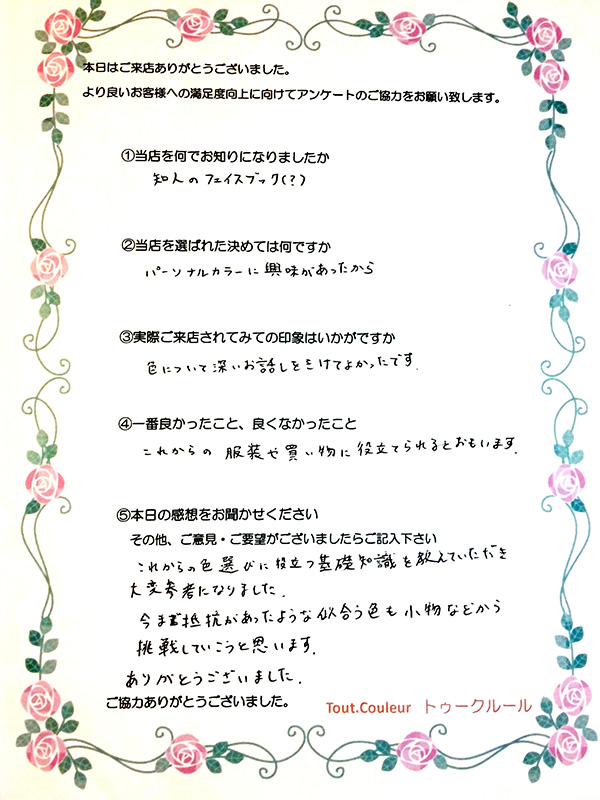 本日はご来店ありがとうございました。
より良いお客様への満足度向上に向けてアンケートのご協力をお願い致します。
①当店を何でお知りになりましたか
知人のフェイスブック(?)
②当店を選ばれた決めては何ですか
パーソナルカラーに興味があったから
③実際ご来店されてみての印象はいかがですか
色について深いお話しをきけてよかったです.
④一番良かったこと、良くなかったこと
これからの 服装や買い物に役立てられるとおもいます.
⑤本日の感想をお聞かせください
その他、ご意見・ご要望がございましたらご記入下さい
これからの色選びに役立つ基礎知識を教えていただき
大変参考になりました.
今まで抵抗があったような似合う色も小物などから
挑戦していこうと思います.
ありがとうございました.
ご協力ありがとうございました。
Tout.Couleur トゥークルール